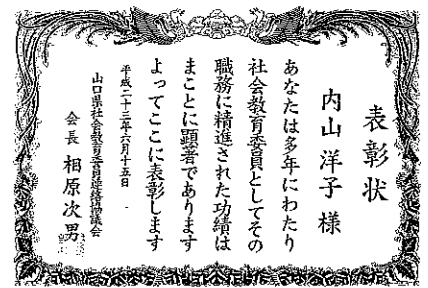 表彰状
内山洋子様
あなたは多年にわたり
社会教育委員としてその
職務に精進された功績は
まことに顕著であります
よってここに表彰します
平成二十三年六月十五日
山口県社会教育委員連絡協議会
会長 相原次男